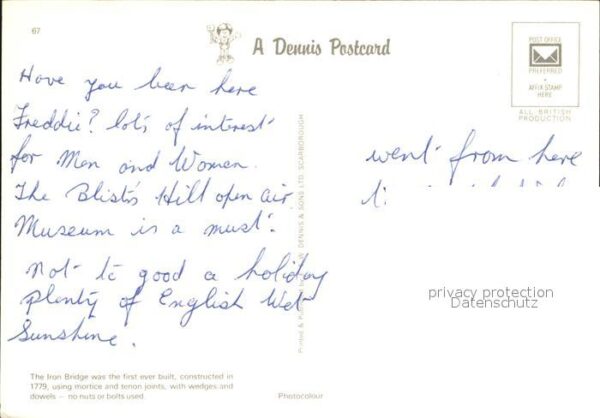 67
A Dennis Postcard
POST OFFICE
PREFERRED
AFFIX STAMP
HERE
ALL BRITISH
PRODUCTION
Have you been here
Freddie? lots of interest
for Men and Women.
The Blists Hill open air
Museum is a must.
Not to good a holiday
plenty of English Wet
Sunshine.
went from here
DENNIS & SONS LTD. SCARBOROUGH
privacy protection
Datenschutz
The Iron Bridge was the first ever built, constructed in
1779, using mortice and tenon joints, with wedges and
dowels – no nuts or bolts used.
Photocolour